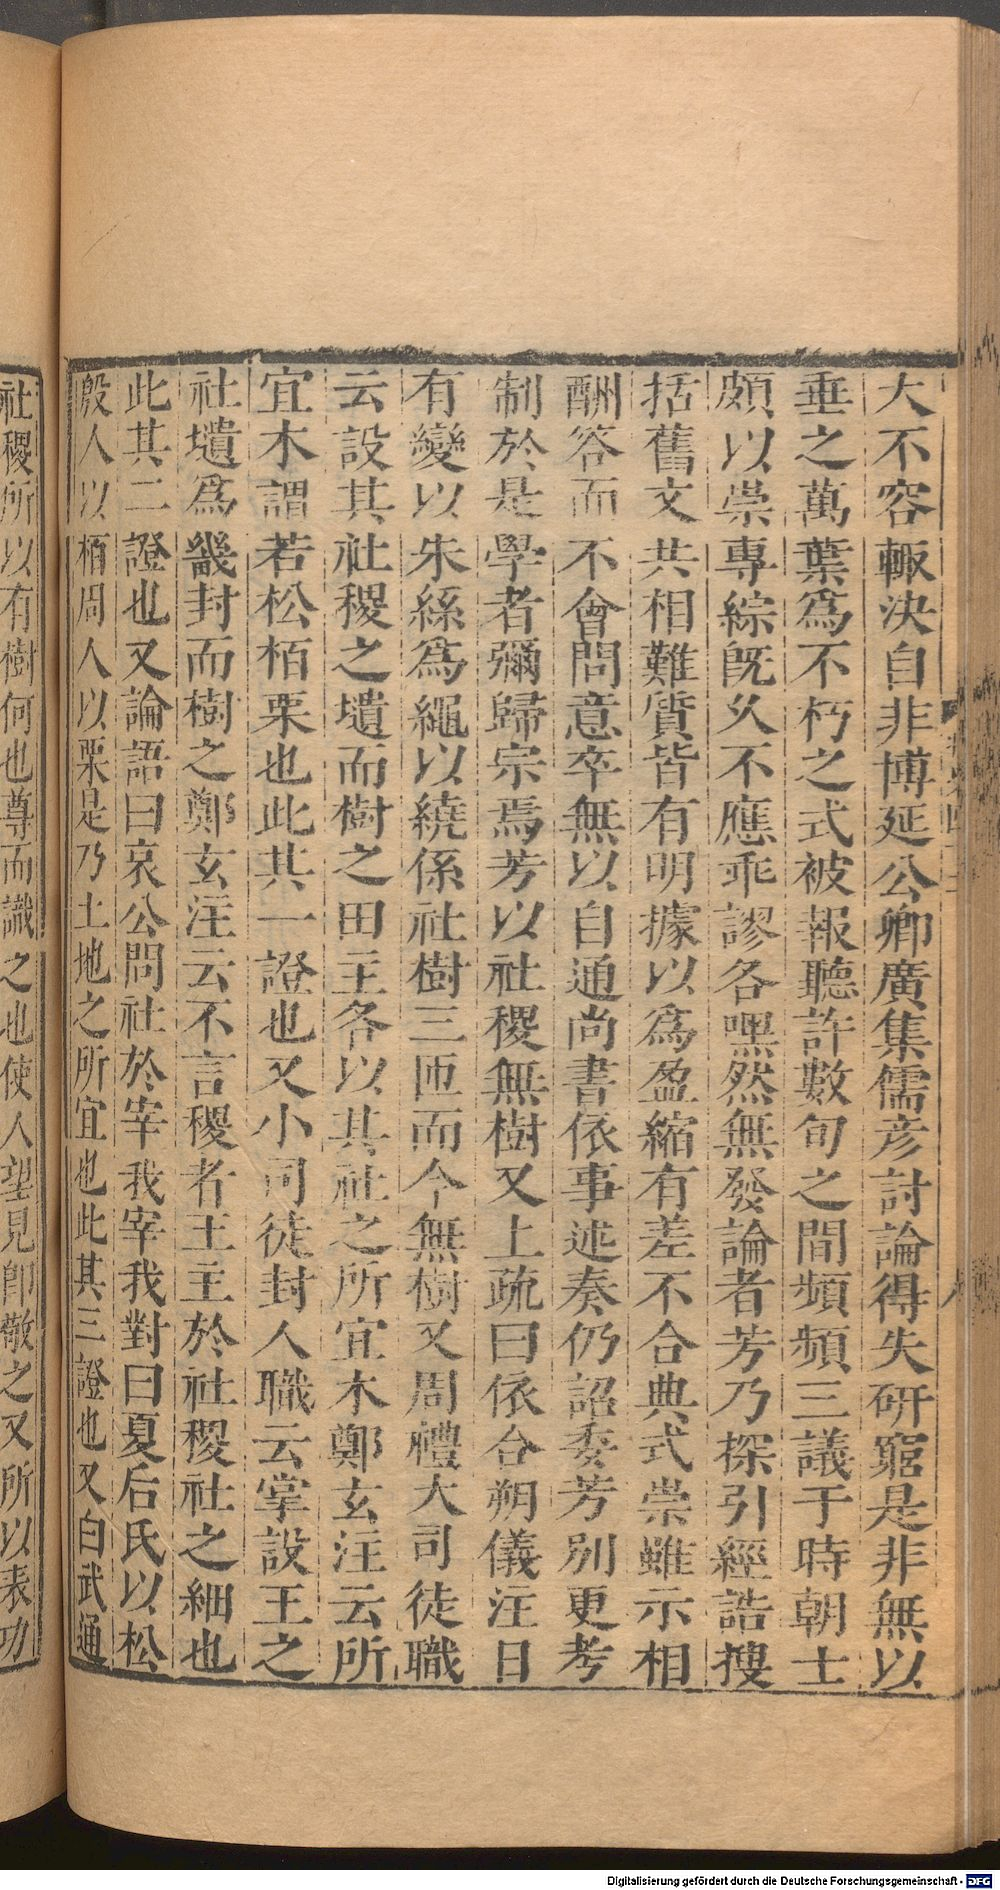 大不容輒決自非博延公卿廣集儒彦討論得失研窮是非無以
垂之萬葉爲不朽之式被報聽許數旬之間頻頻三議于時朝士
頗以崇專綜旣久不應乖謬各嘿然無發論者芳乃探引經誥搜
括舊文共相難質皆有明據以爲盈縮有差不合典式崇雖示相
酬答而不會問意卒無以自通尚書依事述奏仍詔委芳别更考
制於是學者彌歸宗焉芳以社稷無樹又上疏曰依合朔儀注日
有變以朱絲爲繩以繞係社樹三匝而今無樹又周禮大司徒職
云設其社稷之壝而樹之田主各以其社之所宜木鄭玄注云所
宜木謂若松栢栗也此其一證也又小司徒封人職云掌設王之
社壝爲畿封而樹之鄭玄注云不言稷者王主於社稷社之細也
此其二證也又論語曰哀公問社於宰我宰我對曰夏后氏以松
殷人以栢周人以栗是乃土地之所宜也此其三證也又白武通
社稷所以有樹何也尊而識之也使人望見卽敬之又所以表功
Digitalisierung gefördert durch die Deutsche Forschungsgemeinschaft - DFG